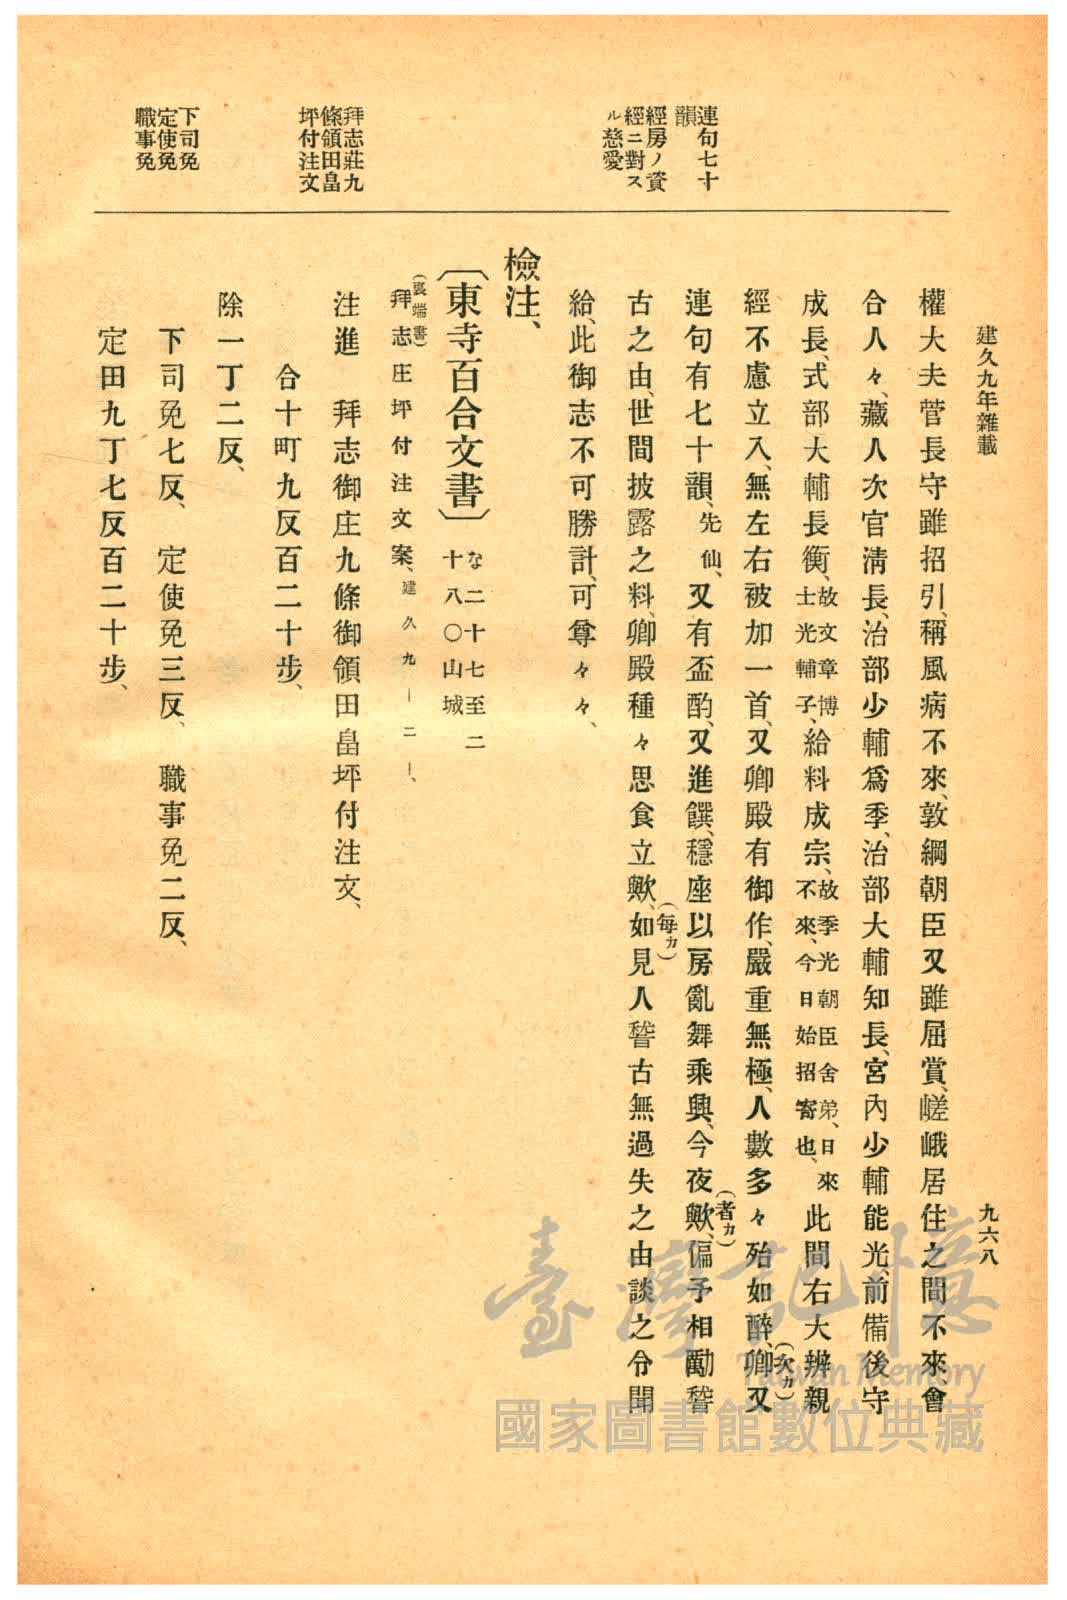 建久九年雜載
九六八
連句七十
韻
經房ノ資
經ニ對ス
ル慈愛
拜志莊九
條領田畠
坪付注文
下司免
定使免
職事免
權大夫菅長守雖招引、稱風病不來、敦綱朝臣又雖屈賞、嵯峨居住之間不來會
合人々、藏人次官淸長、治部少輔爲季、治部大輔知長、宮內少輔能光、前備後守
成長、式部大輔長衡、故文章博士光輔子、給料成宗、故季光朝臣舍弟、日來不來、今日始招寄也、此間右大辨親
經不慮立入、無左右被加一首、又卿殿有御作、嚴重無極、人數多々殆如醉、卿(次カ)又
連句有七十韻、先仙、又有盃酌、又進饌、穩座以房亂舞乘興、今夜歟(者カ)、偏予相勵誓
古之由、世間披露之料、卿殿種々思食立歟、如(每カ)見人誓古無過失之由談之、令聞
給、此御志不可勝計、可尊々々、
檢注、
〔東寺百合文書〕な二十七至二十八〇山城
(裏端書)
拜志庄坪付注文案、建久九ー二ー、
注進　拜志御庄九條御領田畠坪付注文、
合十町九反百二十步、
除一丁二反、
下司免七反、　定使免三反、　職事免二反、
定田九丁七反百二十步、
臺灣記憶
Taiwan Memory
國家圖書館數位典藏